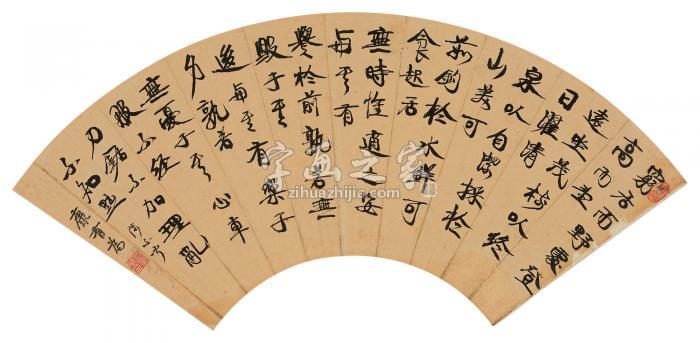 窮居而野處登
高而望
遠坐茂樹以終
日濯清
泉以自潔採於
山美可
茹釣於水鮮可
食起居
無時惟適之安
與其有
譽於前孰若無
毀于其
後與其有樂于
身孰若
無憂于其心車
服不
刀鋸不加理亂
不知
康有為
字画之家
zihuazhijia.com